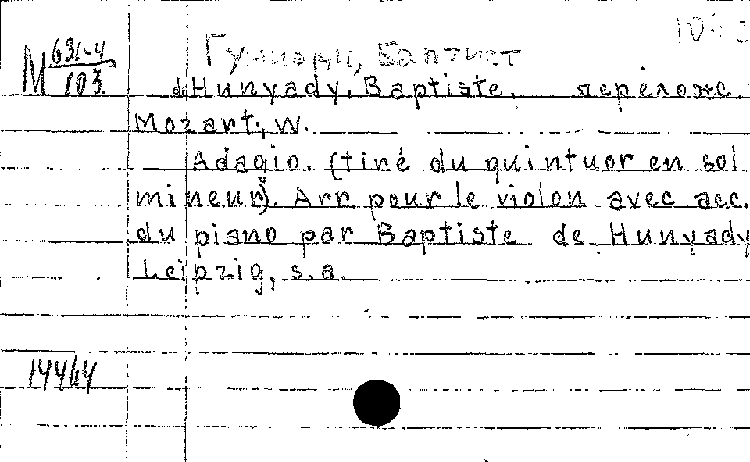 М 631-4
103
Гуниади, Баптист
de Hunyady, Baptiste. перелож.
Mozart, W.
Adagio. (tiré du quintuor en sol
mineur). Arr. pour le violon avec acc.
du piano par Baptiste de Hunyady
Leipzig, s.a.
14464